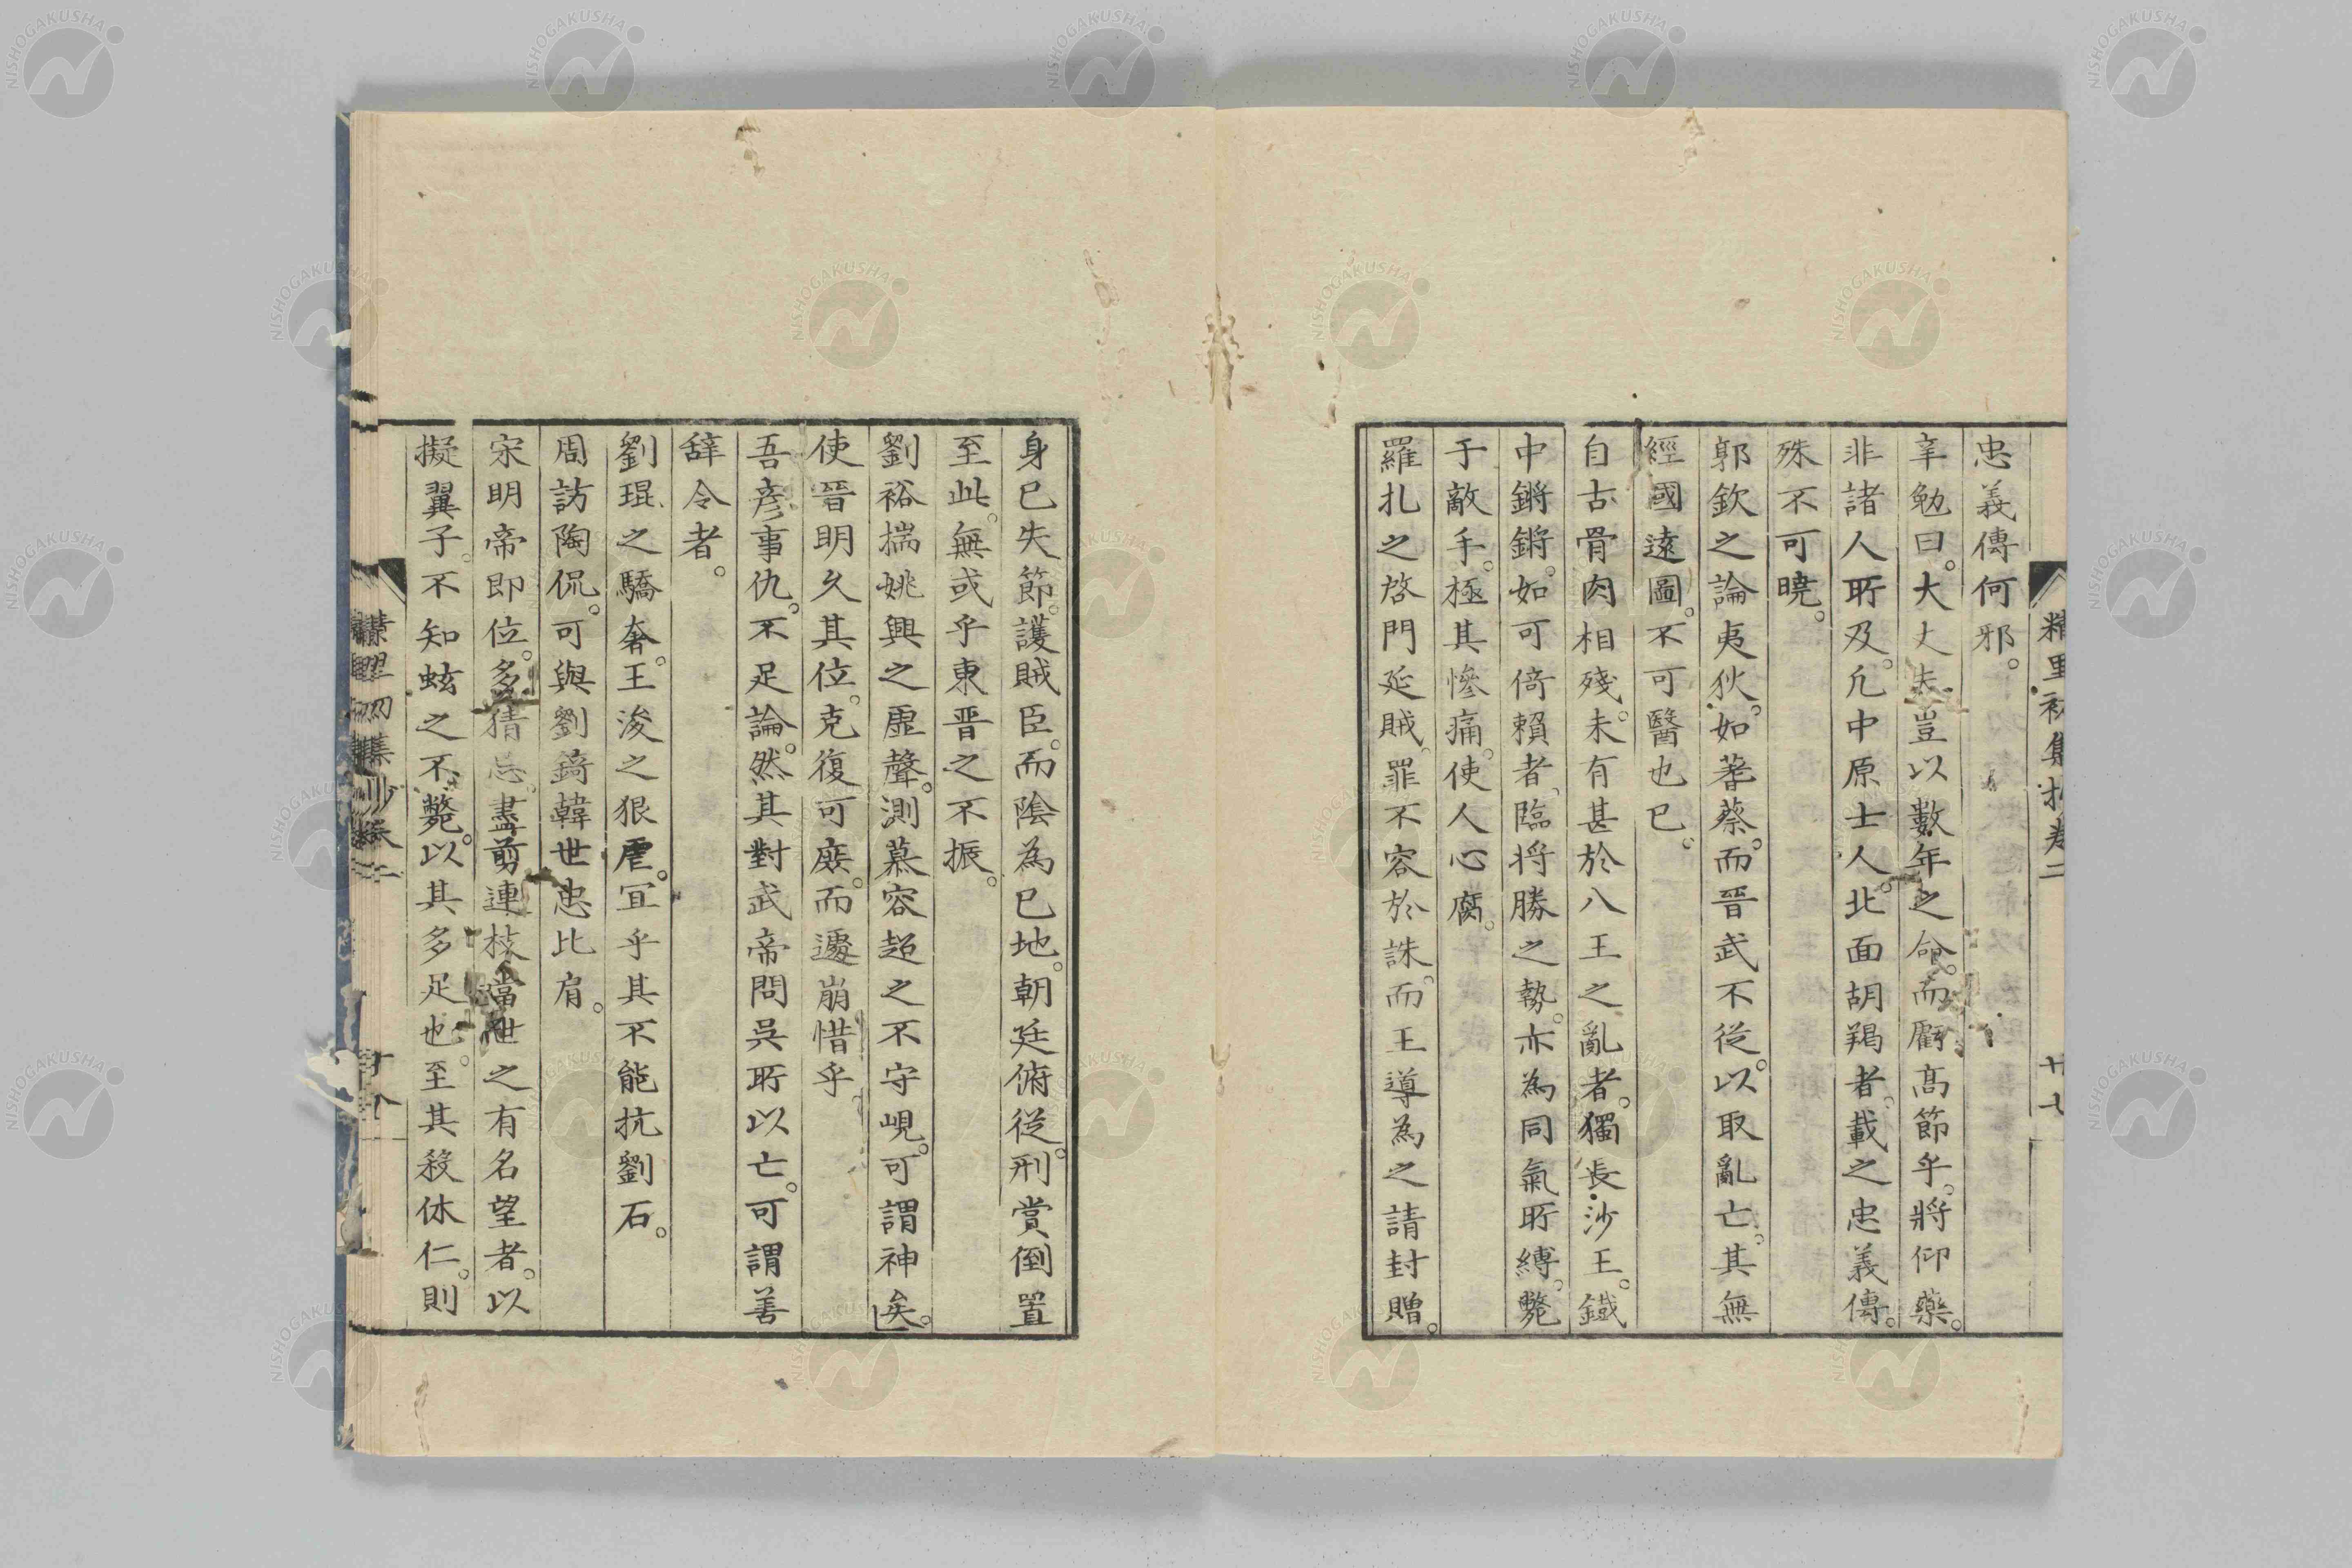 精里初集抄卷二
十七
忠義傳何邪。
辛勉曰。大丈夫豈以數年之命。而虧高節乎。將仰藥。
非諸人所及。凢中原士人。北面胡羯者。載之忠義傳。
殊不可曉。
郭欽之論夷狄。如蓍蔡。而晉武不從。以取亂亡。其無
經國遠圖。不可醫也已。
自古骨肉相殘。未有甚於八王之亂者。獨長沙王。鐵
中錚錚。如可倚賴者。臨將勝之勢。亦為同氣所縛。斃
于敵手。極其慘痛。使人心腐。
羅扎之啓門延賊。罪不容於誅。而王導為之請封贈。
身已失節。護賊臣。而陰為已地。朝廷俯從。刑賞倒置
至此。無或乎東晋之不振。
劉裕揣姚興之虛聲。測慕容超之不守峴。可謂神矣。
使晉明久其位。克復可庶。而遽崩惜乎。
吾彥事仇。不足論。然其對武帝問吳所以亡。可謂善
辞令者。
劉琨之驕奢。王浚之狠虐。冝乎其不能抗劉石。
周訪陶侃。可與劉錡韓世忠比肩。
宋明帝即位。多猜忌。盡剪連枝當世之有名望者。以
擬翼子。不知蚿之不斃。以其多足也。至其殺休仁。則
精里初集抄卷二
十八
NISHOGAKUSHA